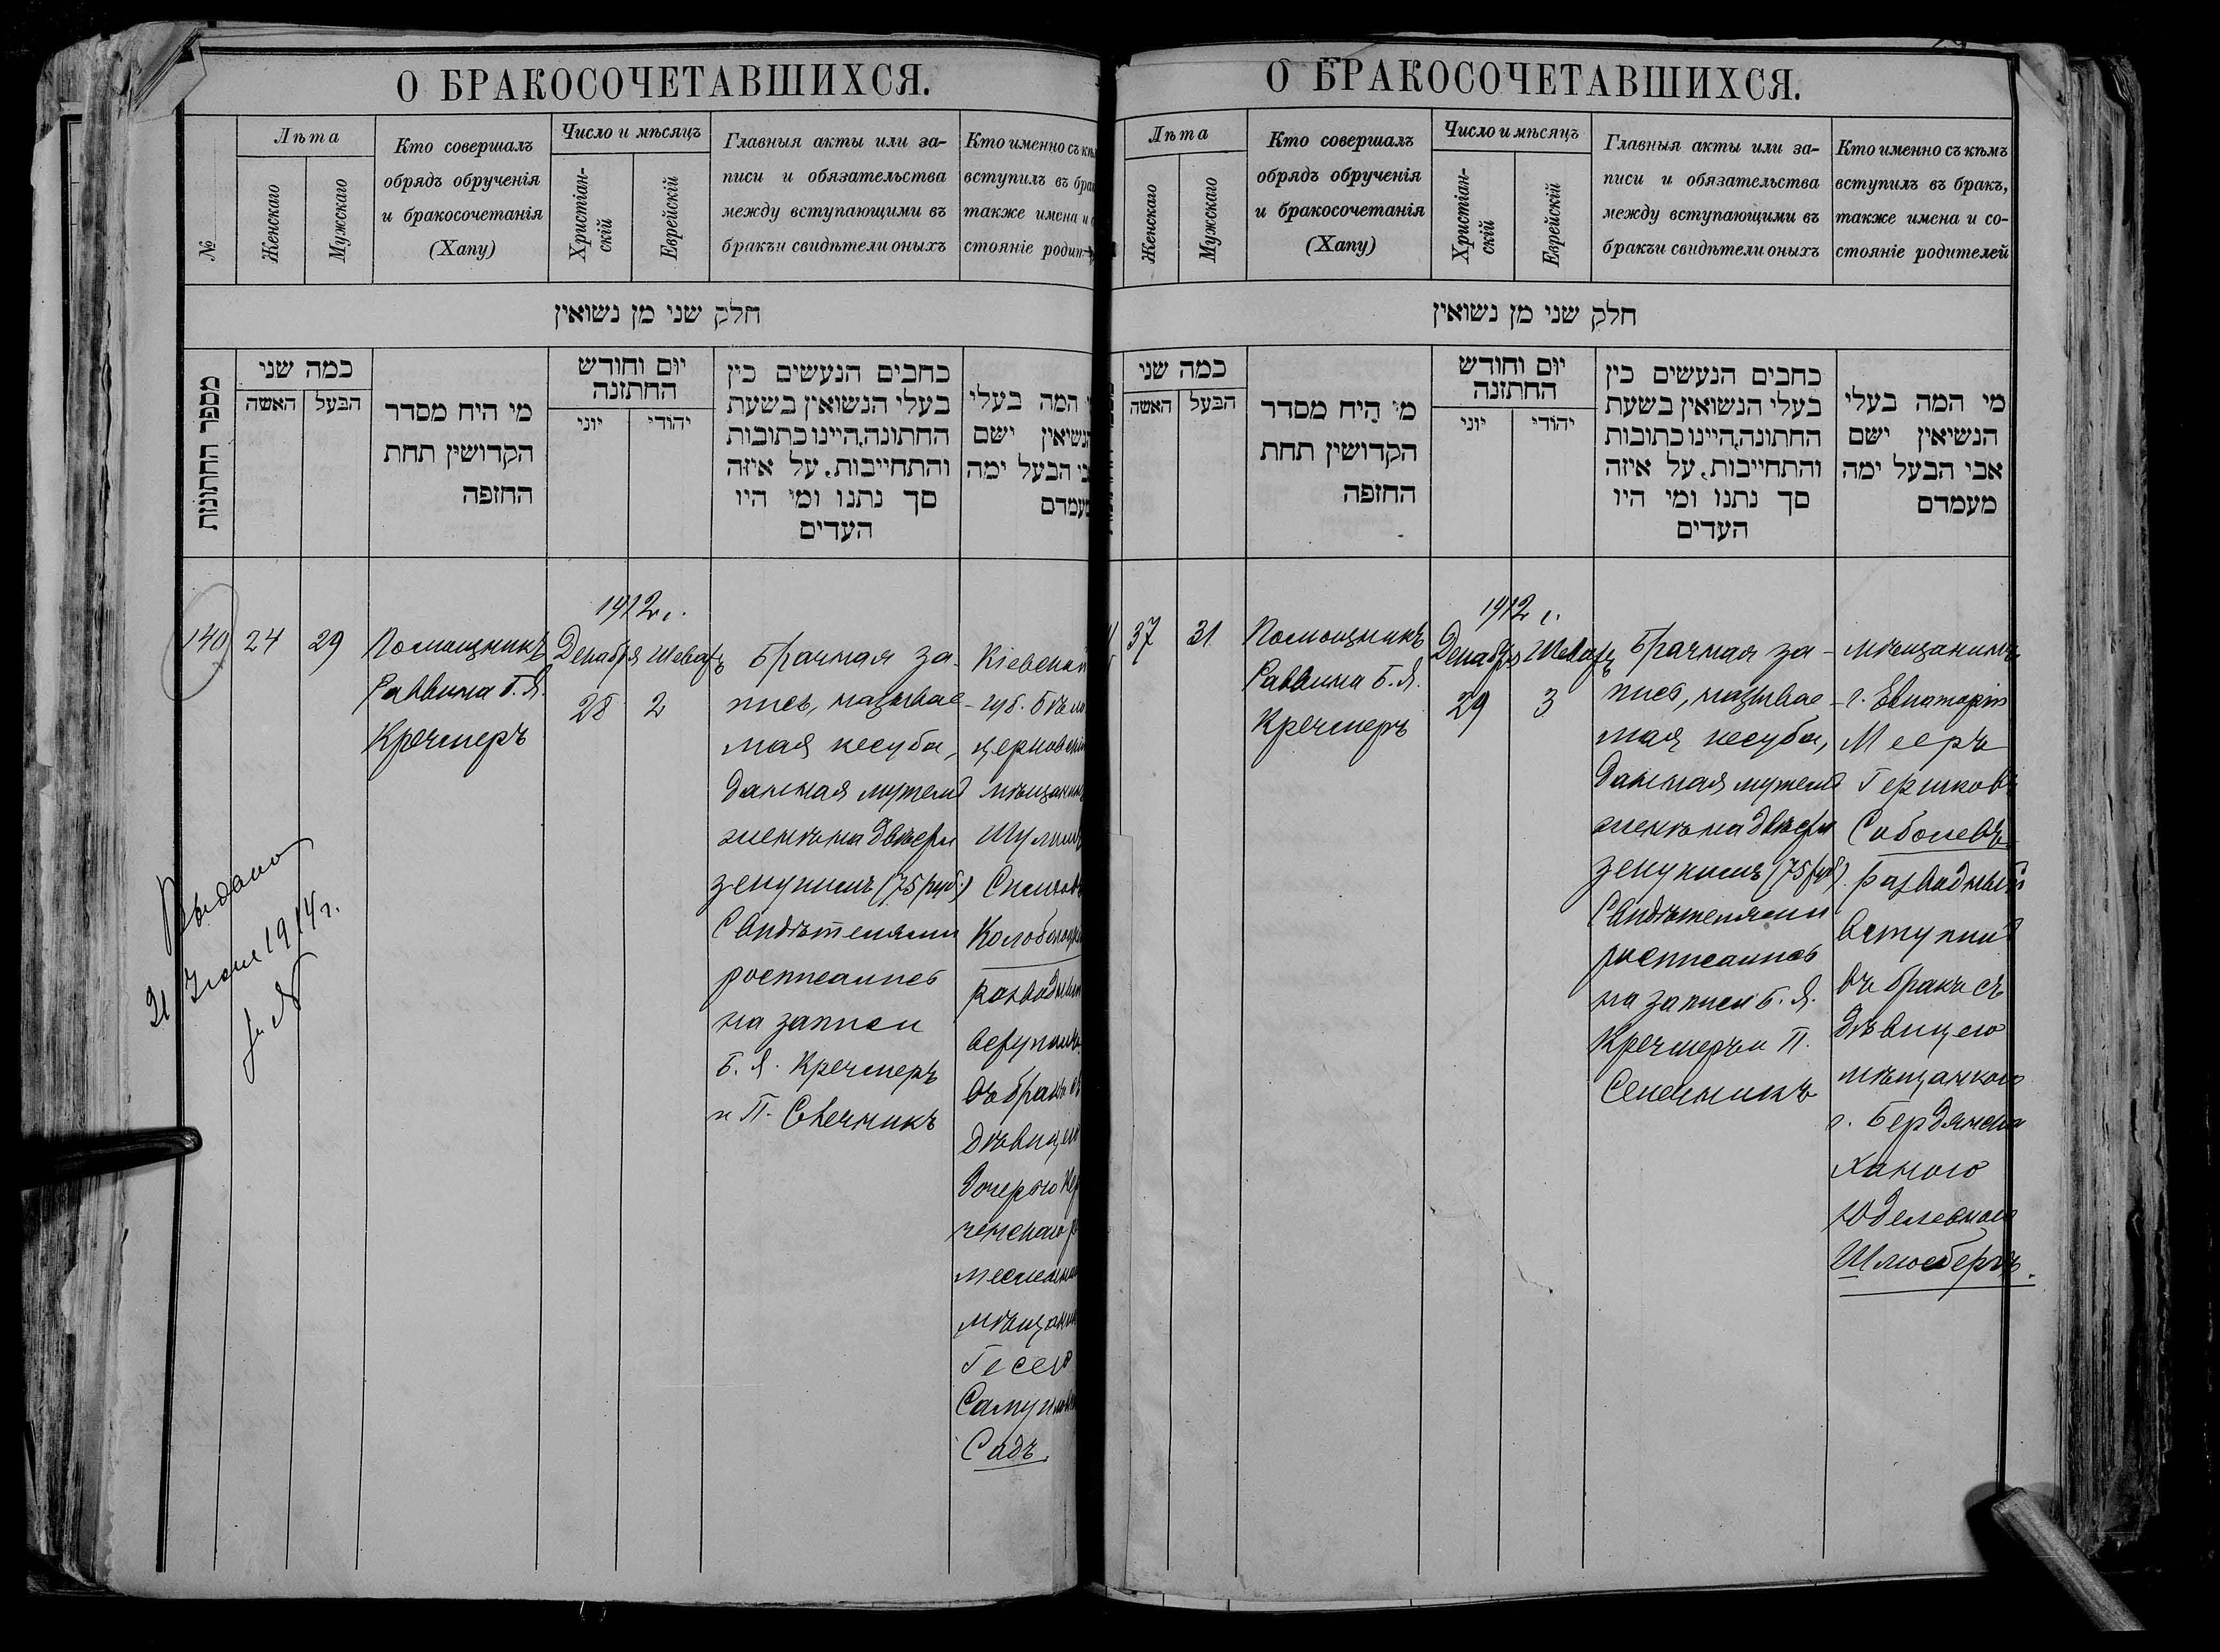 О БРАКОСОЧЕТАВШИХСЯ.
№
Лѣта
Женскаго
Мужскаго
Кто совершалъ
обрядъ обрученія
и бракосочетанія
(Хапу)
Число и мѣсяцъ
Христіан-
скій
Еврейскій
Главныя акты или за-
писи и обязательства
между вступающими въ
бракъи свидѣтели оныхъ
Кто именно съ
вступилъ въ
также имена и
стояніе
חלק שני מן נשואין
מספר החתונות
כמה שני
האשה
הבעל
מי היח מסדר
הקדושין תחת
החזפה
יום וחודש
החתזנה
יוני
יהודי
כחבים הנעשים כין
בעלי הנשואין בשעת
החתונה,היינו כתובות
והתחייבות, על איזה
סך נתנו ומי היו
העדים
המה בעלי
הנשיאין ישם
הבעל ימה
מעמדם
140
24
29
Помощникъ
Раввина Б. Я.
Кречмеръ
1912 г.
Декабря
28
Шеватъ
2
Брачная за-
пись, называе-
мая кесуба,
данная мужемъ
женѣ на двѣсти
зенукимъ (75 руб.)
Свидѣтелями
росписались
на записи
Б. Я. Кречмеръ
и П. Свечникъ
Кіевской
губ.
мѣщанинъ
въ бракъ
дѣвицею
дочерью
Гесею
Садъ.
Выдано
21 1914 г.
О БРАКОСОЧЕТАВШИХСЯ.
Лѣта
Женскаго
Мужскаго
Кто совершалъ
обрядъ обрученія
и бракосочетанія
(Хапу)
Число и мѣсяцъ
Христіан-
скій
Еврейскій
Главныя акты или за-
писи и обязательства
между вступающими въ
бракъи свидѣтели оныхъ
Кто именно съ кѣмъ
вступилъ въ бракъ,
также имена и со-
стояніе родителей
חלק שני מן נשואין
כמה שני
האשה
הבעל
מי היח מסדר
הקדושין תחת
החזפה
יום וחודש
החתזנה
יוני
יהודי
כחבים הנעשים כין
בעלי הנשואין בשעת
החתונה,היינו כתובות
והתחייבות, על איזה
סך נתנו ומי היו
העדים
מי המה בעלי
הנשיאין ישם
אבי הבעל ימה
מעמדם
37
31
Помощникъ
Раввина Б. Я.
Кречмеръ
1912 г.
Декабря
29
Шеватъ
3
Брачная за-
пись, называе-
мая кесуба,
данная мужемъ
женѣ на двѣсти
зенукимъ (75 руб.)
Свидѣтелями
росписались
на записи Б. Я.
Кречмеръ и П.
Свечникъ
мѣщанинъ
г. Евпаторіи
Мееръ
Гершковъ
Соболевъ
разводный
вступилъ
въ бракъ съ
дѣвицею
мѣщанкою
г. Бердянска
Ханою
Юделевною
Шлюсбергъ.